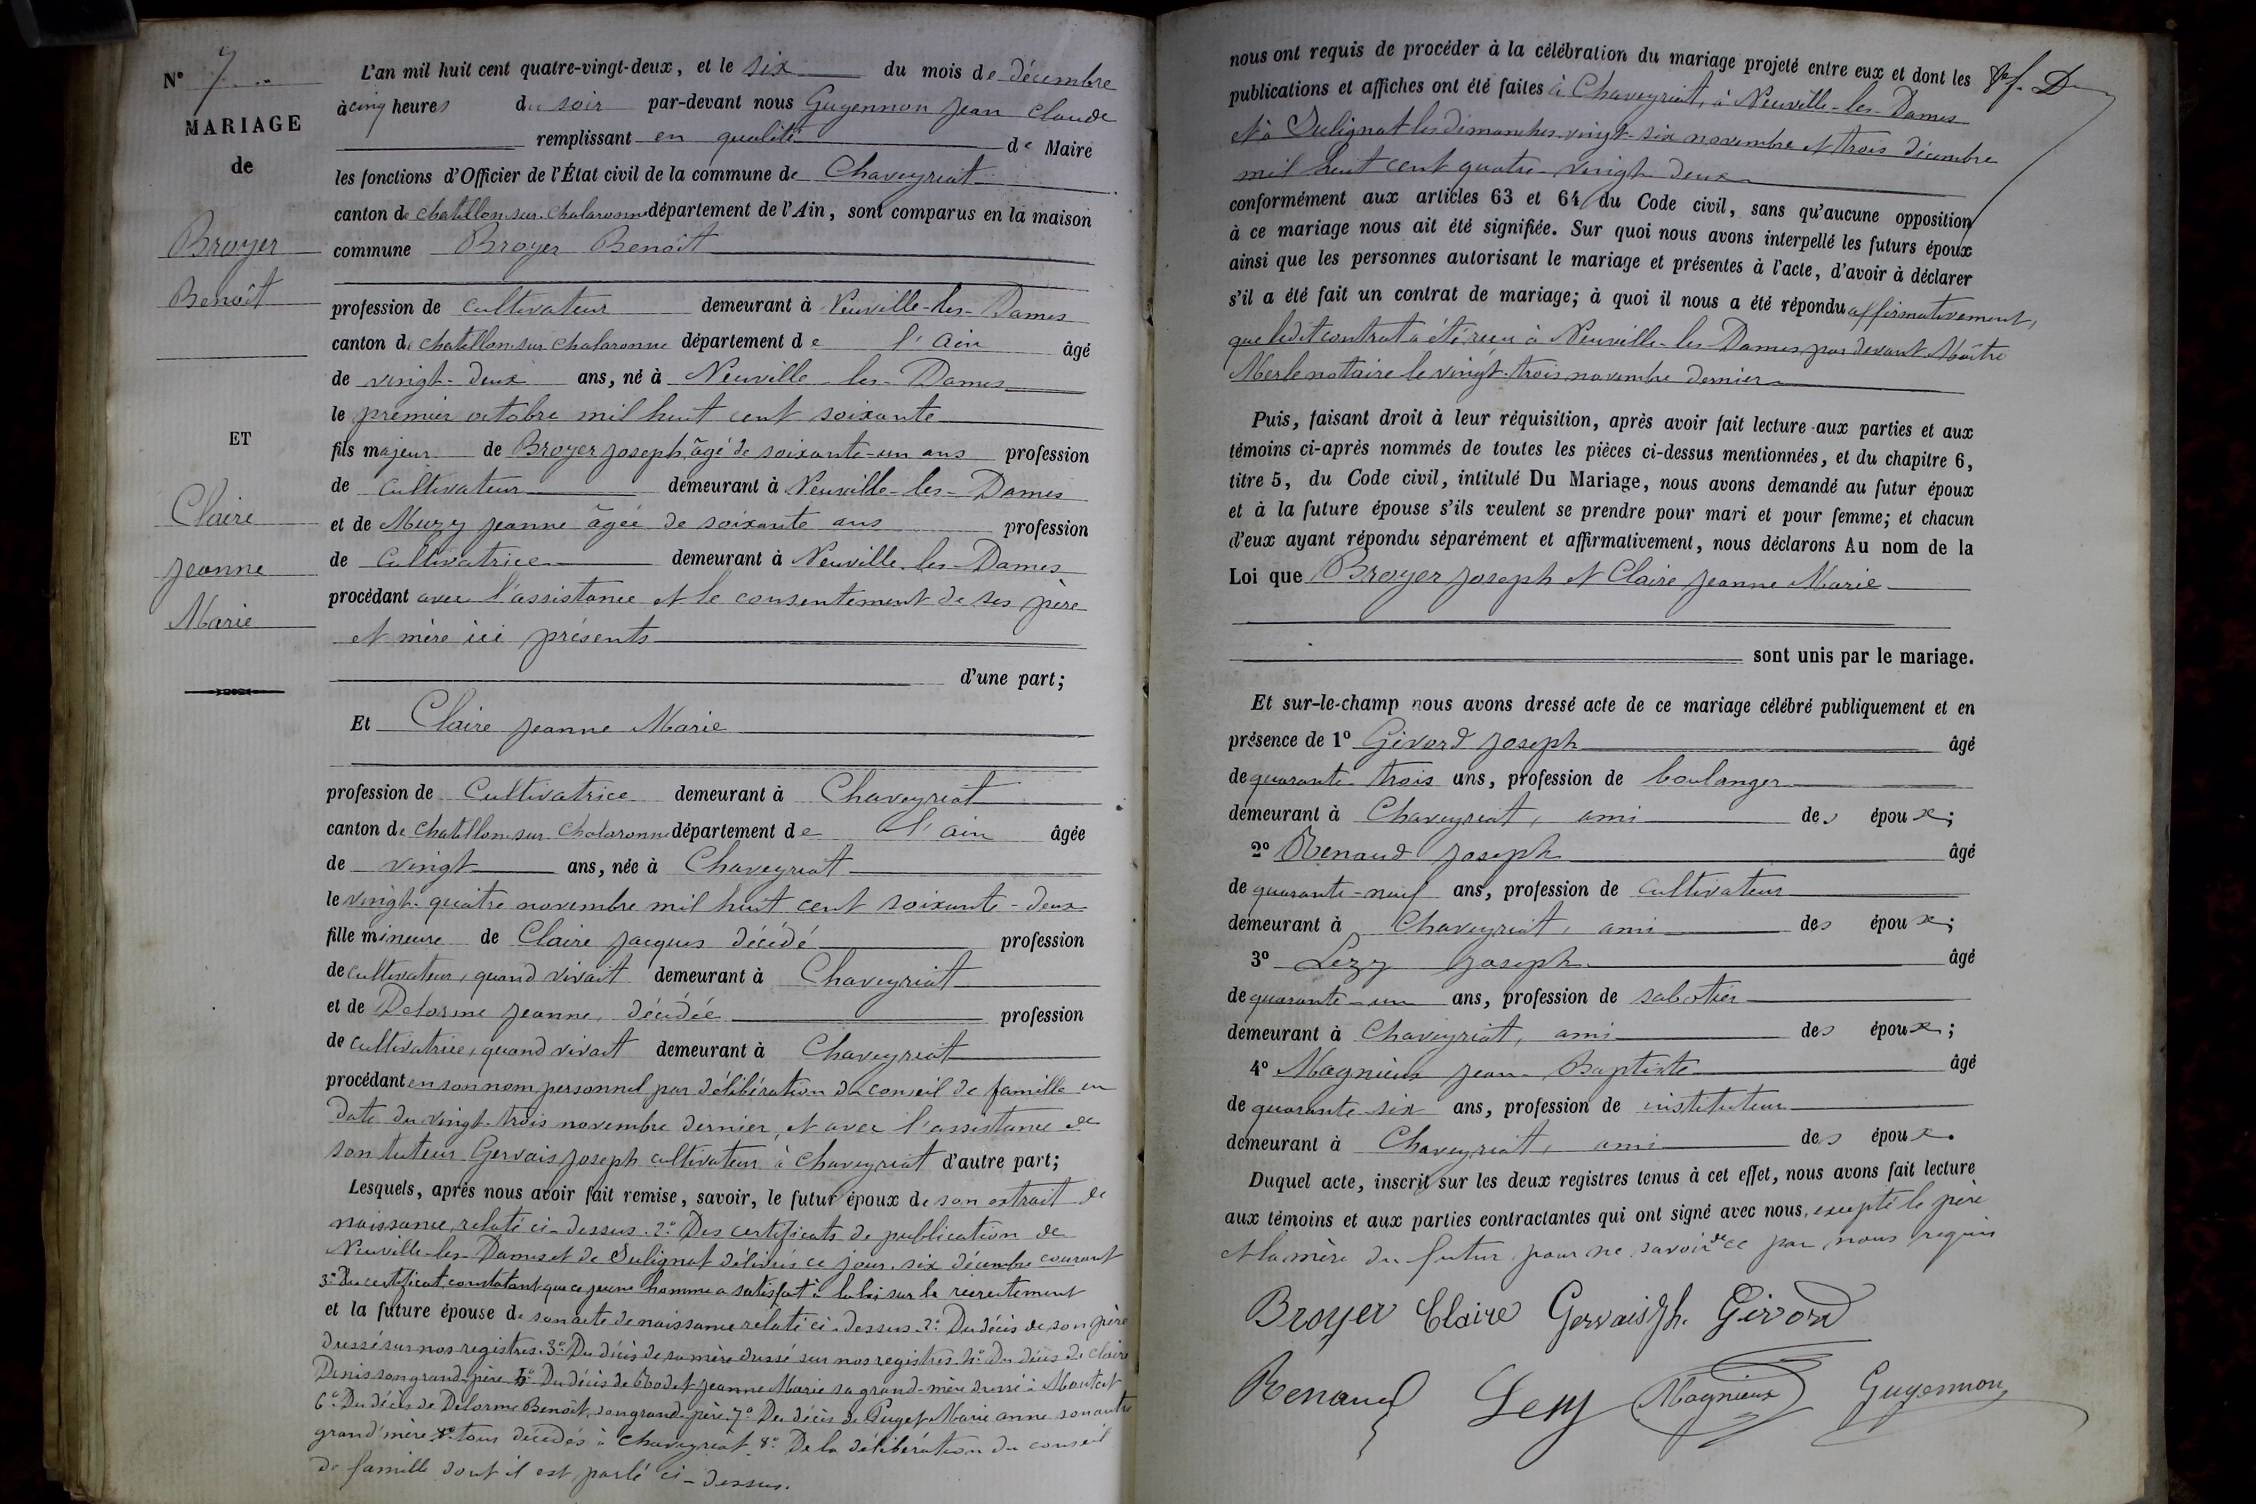 N° 7
MARIAGE
de
Broyer
Benoît
ET
Claire
Jeanne
Marie
L'an mil huit cent quatre-vingt-deux, et le six du mois de décembre
à cinq heures du soir par-devant nous Guyennon Jean Claude
remplissant en qualité de Maire
les fonctions d'Officier de l'État civil de la commune de Chaveyriat
canton de Chatillon-sur-Chalaronne département de l'Ain, sont comparus en la maison
commune Broyer Benoît
profession de cultivateur demeurant à Neuville-les-Dames
canton de Chatillon sur Chalaronne département de l'Ain âgé
de vingt-deux ans, né à Neuville-les-Dames
le premier octobre mil huit cent soixante
fils majeur de Broyer Joseph, âgé de soixante-un ans profession
de cultivateur demeurant à Neuville-les-Dames
et de Muzy Jeanne âgée de soixante ans profession
de cultivatrice demeurant à Neuville-les-Dames
procédant avec l'assistance et le consentement de ses père
et mère ici présents
d'une part;
Et Claire Jeanne Marie
profession de Cultivatrice demeurant à Chaveyriat
canton de Chatillon sur Chalaronne département de l'Ain âgée
de vingt ans, née à Chaveyriat
le vingt-quatre novembre mil huit cent soixante-deux
fille mineure de Claire Jacques décédé profession
de cultivateur, quand vivait demeurant à Chaveyriat
et de Delorme Jeanne, décédée profession
de cultivatrice, quand vivait demeurant à Chaveyriat
procédant en son nom personnel par délibération du conseil de famille en
date du vingt-trois novembre dernier, et avec l'assistance de
son tuteur Gervais Joseph cultivateur à Chaveyriat d'autre part;
Lesquels, après nous avoir fait remise, savoir, le futur époux de son extrait de
naissance, relaté ci-dessus. 2° Des certificats de publication de
Neuville-les-Dames et de Sulignat délivrés ce jour, six décembre courant
3° Du certificat constatant que ce jeune homme a satisfait à la loi sur le recrutement
et la future épouse de son acte de naissance relaté ci-dessus. 2° Du décès de son père
dressé sur nos registres. 3° Du décès de sa mère dressé sur nos registres. 4° Du décès de Claire
Denis son grand-père 5° Du décès de Jeanne Marie sa grand-mère dressé à
6° Du décès de Delorme Benoît, son grand-père. 7° Du décès de Puget Marie anne son autre
grand'mère tous décédés à Chaveyriat 8° De la délibération du conseil
de famille dont il est parlé ci-dessus.
nous ont requis de procéder à la célébration du mariage projeté entre eux et dont les
publications et affiches ont été faites à Chaveyriat, à Neuville-les-Dames
et à Sulignat les dimanches vingt-six novembre et trois décembre
mil huit cent quatre-vingt-deux
conformément aux articles 63 et 64 du Code civil, sans qu'aucune opposition
à ce mariage nous ait été signifiée. Sur quoi nous avons interpellé les futurs époux
ainsi que les personnes autorisant le mariage et présentes à l'acte, d'avoir à déclarer
s'il a été fait un contrat de mariage; à quoi il nous a été répondu affirmativement,
que ledit contrat a été reçu à Neuville-les-Dames par devant Maître
Merle notaire le vingt-trois novembre dernier
Puis, faisant droit à leur réquisition, après avoir fait lecture aux parties et aux
témoins ci-après nommés de toutes les pièces ci-dessus mentionnées, et du chapitre 6,
titre 5, du Code civil, intitulé Du Mariage, nous avons demandé au futur époux
et à la future épouse s'ils veulent se prendre pour mari et pour femme; et chacun
d'eux ayant répondu séparément et affirmativement, nous déclarons Au nom de la
Loi que Broyer Joseph et Claire Jeanne Marie
sont unis par le mariage.
Et sur-le-champ nous avons dressé acte de ce mariage célébré publiquement et en
présence de 1° Givord Joseph âgé
de quarante-trois ans, profession de boulanger
demeurant à Chaveyriat, ami des époux;
2° Renaud Joseph âgé
de quarante-neuf ans, profession de cultivateur
demeurant à Chaveyriat, ami des époux;
3° Lezy Joseph âgé
de quarante-un ans, profession de sabotier
demeurant à Chaveyriat, ami des époux;
4° Magnieux Jean-Baptiste âgé
de quarante-six ans, profession de instituteur
demeurant à Chaveyriat, ami des époux.
Duquel acte, inscrit sur les deux registres tenus à cet effet, nous avons fait lecture
aux témoins et aux parties contractantes qui ont signé avec nous, excepté le père
et la mère du futur pour ne savoir de ce par nous requis
Broyer Claire Gervais Jh. Givord
Renaud Lezy Magnieux Guyennon